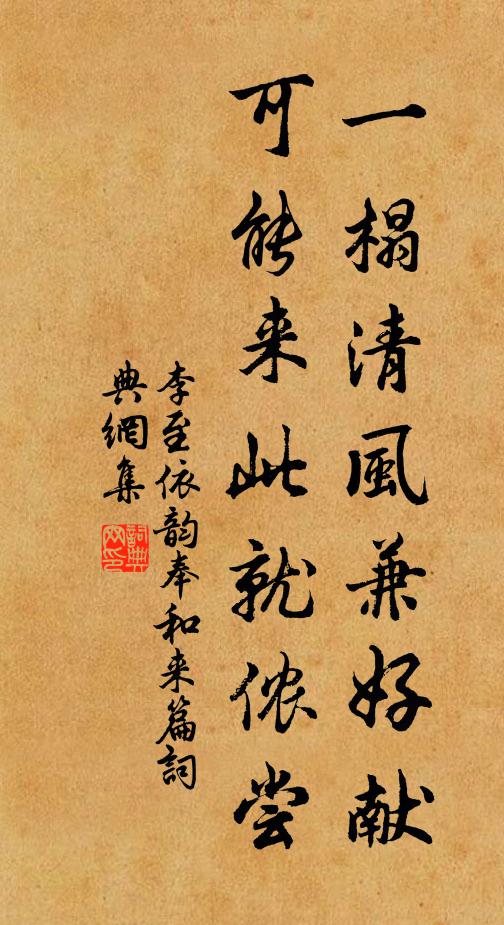 一榻清風兼好献
可能来此就侬尝
李至依韵奉和来篇詞
典網集
詞典网印